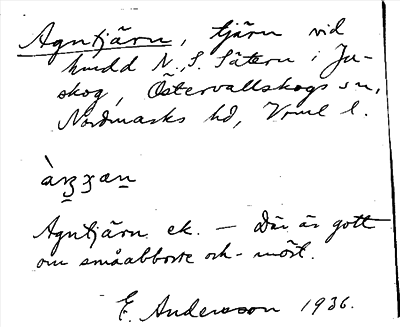 Agntjärn, tjärn vid
hudd N. S. Sätern i Ju-
skog, Östervallskogs sn,
Nordmarks hd, Vrml l.
Agntjärn ek. — Där är gott
om småabborre och mört.
E. Andersson 1936.